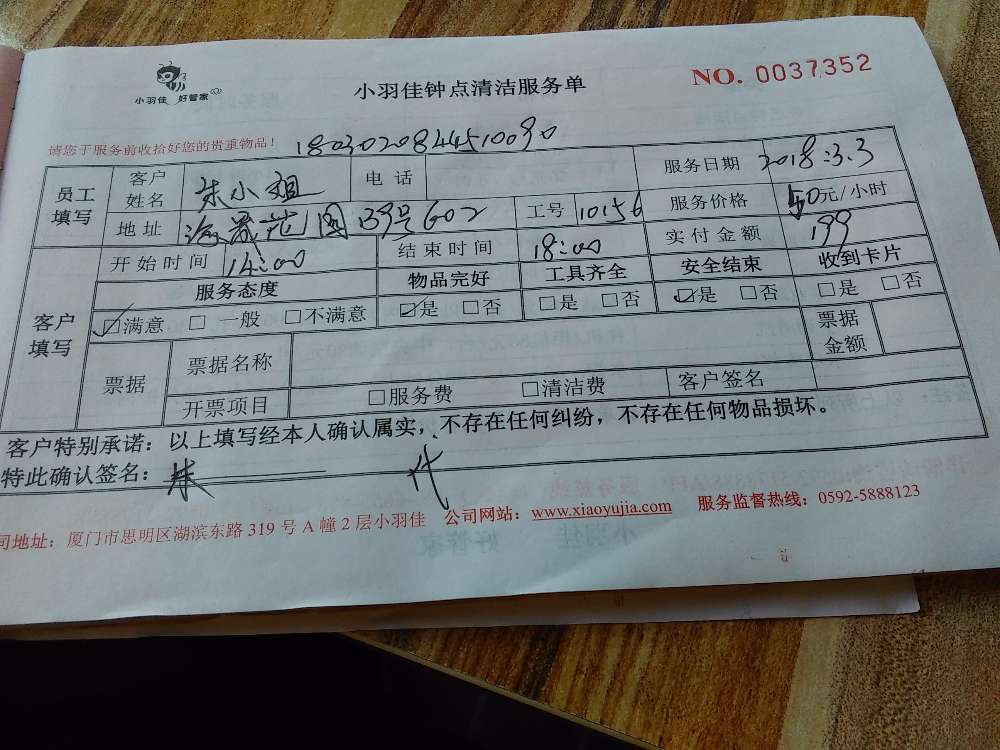 小羽佳 好管家
小羽佳钟点清洁服务单
NO. 0037352
请您于服务前收拾好您的贵重物品！ 1803020844510090
员工填写 客户姓名 朱小姐 电话 服务日期 2018:3.3
地址 花园 39号602 工号 10156 服务价格 50元/小时
客户填写 开始时间 14:00 结束时间 18:00 实付金额 199
服务态度 物品完好 工具齐全 安全结束 收到卡片
☑满意 □一般 □不满意 ☑是 □否 □是 □否 ☑是 □否 □是 □否
票据 票据名称 票据金额
开票项目 □服务费 □清洁费 客户签名
客户特别承诺：以上填写经本人确认属实，不存在任何纠纷，不存在任何物品损坏。
特此确认签名：朱 代
司地址：厦门市思明区湖滨东路319号A幢2层小羽佳 公司网站：www.xiaoyujia.com 服务监督热线：0592-5888123